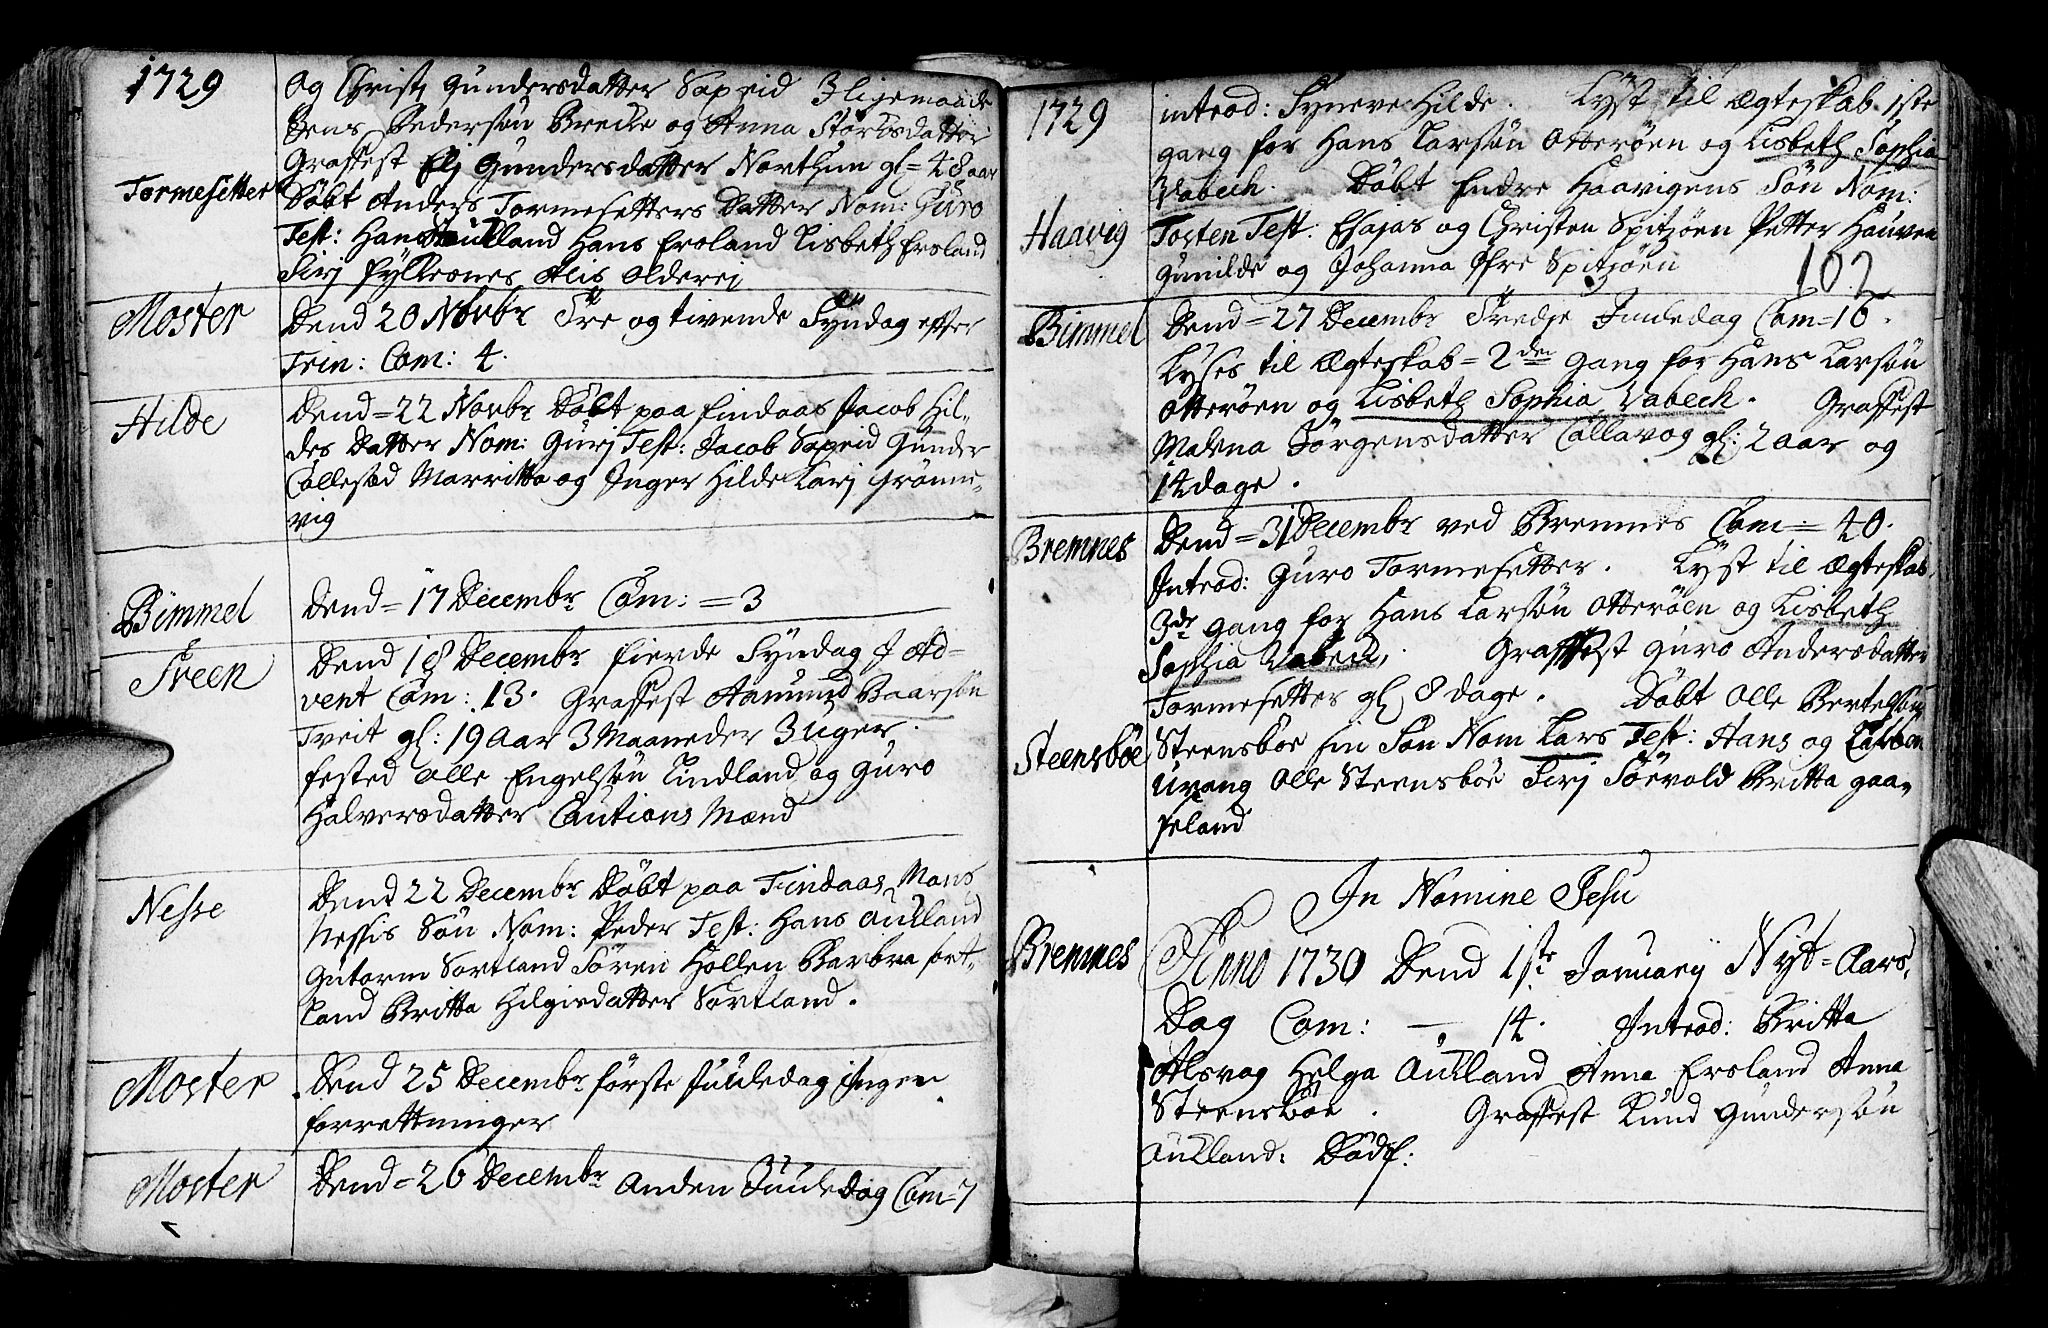 1729
og Christj Gundersdatter Sapreid Jligemaade
Jens Pedersøn Brecke og Anna Størksdatter
Graffest Elj Gundersdatter Northun gl= 48 aar
Tormesetter
Døbt Anders Tormesetters Datter Nom: Guro
Test: Hans Aulland Hans Ersland Lisbeth Ersland
Sirj Fylkesnes Alis Olderej
Moster
Dend 20 Novbr Tre og tivende Syndag efter
Trin: Com: 4.
Hilde
Dend = 22 Novbr Døbt paa Findaas Jacob Hil=
des Datter Nom: Gurj Test: Jacob Sapreid Gunder
Callestad Marritta og Inger Hilde Karj Grønne=
vig
Bimmel
Dend = 17 Decembr Com: = 3
Freen
Dend 18 Decembr fierde Syndag J Ad=
vent Com: 13. Graffest Aamund Baarsøn
Tveit gl: 19 Aar 3 Maaneder 3 Uger.
fested Olle Engelsøn Lindland og Guro
Halversdatter Cautions Mænd
Nesse
Dend 22 Decembr Døbt paa Findaas Mons
Nessis Søn Nom: Peder Test: Hans Aulland
Gutorm Sortland Søren Hollen Barbra Sort=
land Britta Helgisdatter Sortland.
Moster
Dend 25 Decembr første Juuledag ingen
forrettninger
Moster
Dend = 26 Decembr Anden Juuledag Com = 7
1729
introd: Syneve Hilde. Lyst til Ægteskab 1ste
gang for Hans Larsøn Otterøen og Lisbeth Sophia
Vabech. Døbt Endre Haavigens Søn Nom:
Haavig
Tosten Test: Esajas og Christen Spitzøen Petter Hauven
Gunilde og Johanna Ifre Spitzøen
102
Bimmel
Dend = 27 Decembr Tredje Juuledag Com = 16.
Lyses til Ægteskab = 2den gang for Hans Larsøn
Otterøen og Lisbeth Sophia Vabech. Graffest
Malena Jørgensdatter Callavog gl: 2 aar og
14 dage.
Bremnes
Dend = 31 Decembr ved Bremnes Com: = 40.
Introd: Guro Tormesetter. Lyst til Ægteskab
3de gang for Hans Larsøn Otterøen og Lisbeth
Sophia Vabech. Graffest Guro Andersdatter
Tormesetter gl 8 dage. Døbt Olle Bertelsøn
Steensbøe
Steensbøe sin Søn Nom Lars Test: Hans og
Urang Olle Steensbøe Sirj Sørvold Britta Gaa=
seland
In Nomine Jesu
Bremnes
Anno 1730 Dend 1ste January Nyt=Aars
Dag Com: — 14. Introd: Britta
Alsvog Helga Aulland Anna Ersland Anna
Steensbøe. Graffest Knud Gundersøn
Aulland: Dødf: